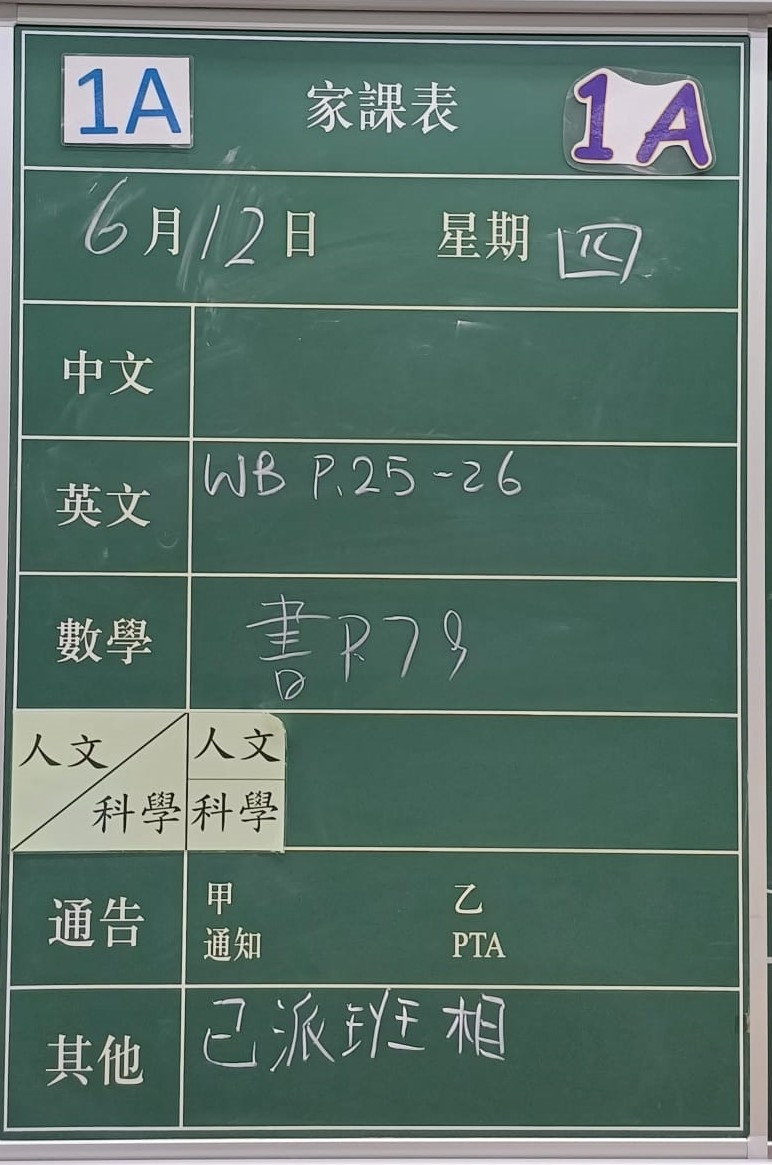 1A 家課表 1A
6月12日 星期 四
中文
英文 WB P.25-26
數學 書P.79
人文 人文
科學 科學
通告 甲 乙
通知 PTA
其他 已派班相